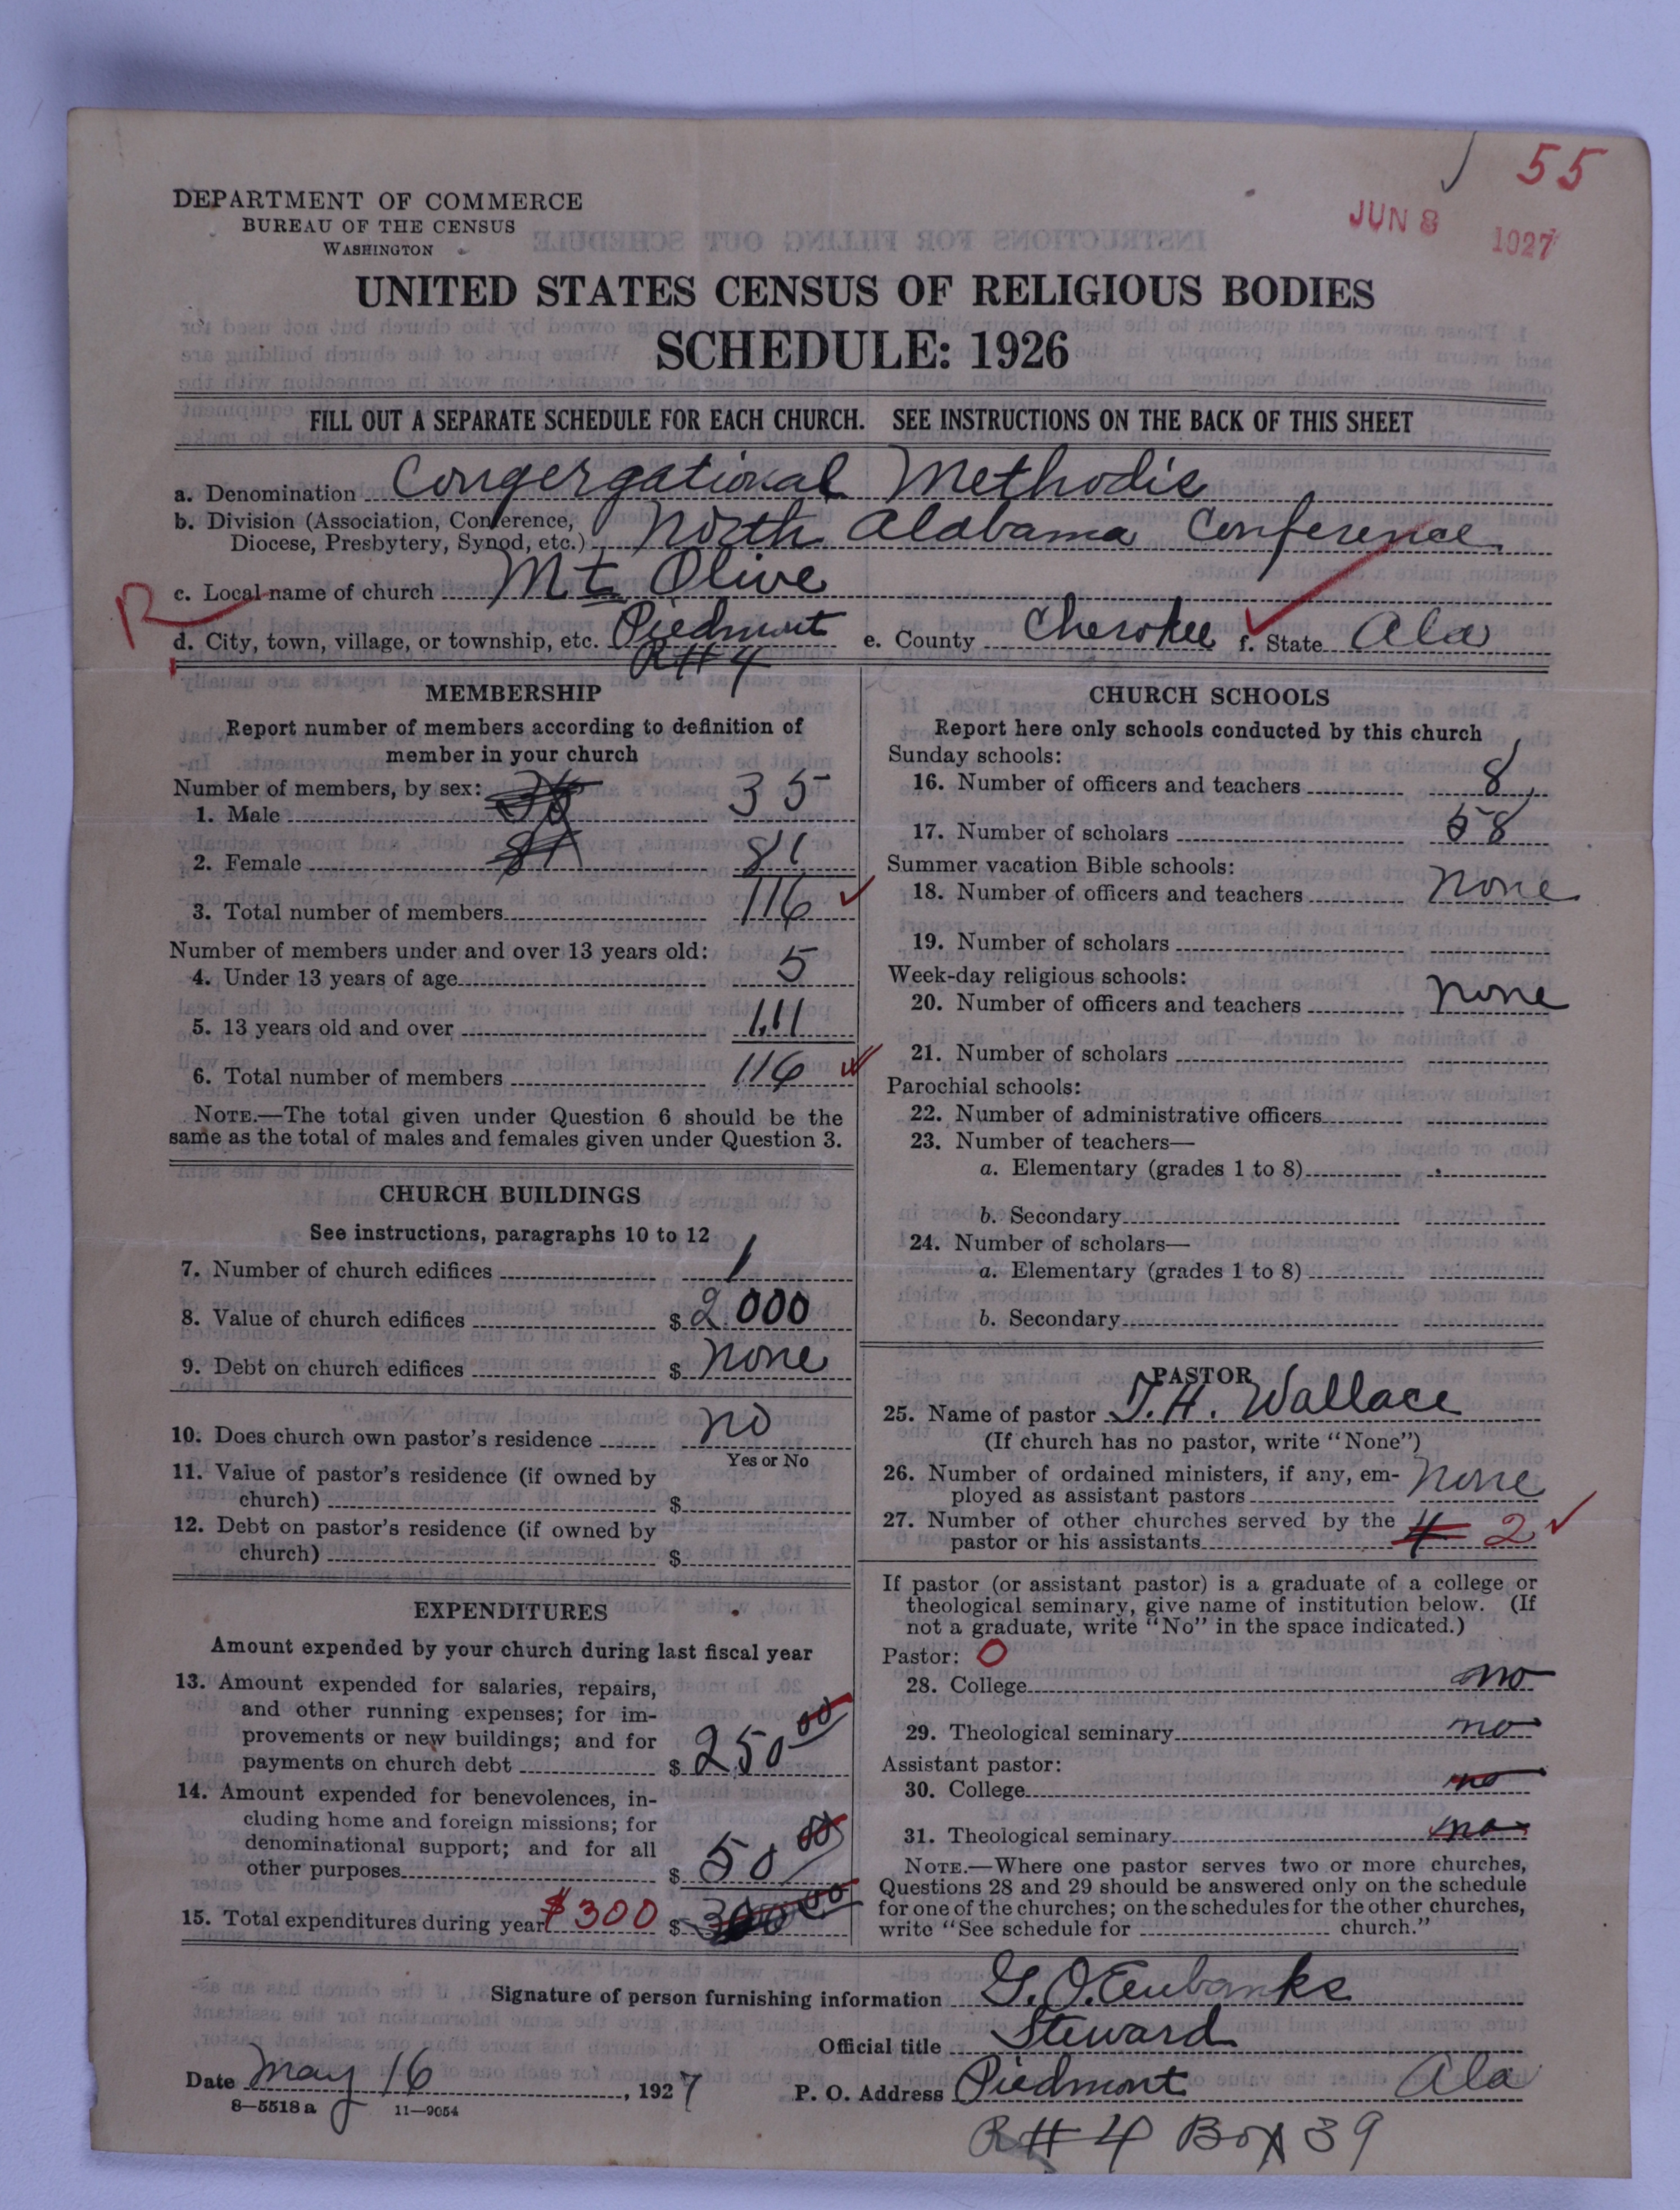 55
JUN 8 1927
DEPARTMENT OF COMMERCE
BUREAU OF THE CENSUS
WASHINGTON
UNITED STATES CENSUS OF RELIGIOUS BODIES
SCHEDULE: 1926
FILL OUT A SEPARATE SCHEDULE FOR EACH CHURCH. SEE INSTRUCTIONS ON THE BACK OF THIS SHEET
a. Denomination Congergational Methodis
b. Division (Association, Conference,
Diocese, Presbytery, Synod, etc.) North Alabama Conference
R
c. Local name of church Mt Olive
d. City, town, village, or township, etc. Piedmont e. County Cherokee f. State Ala
R#4
MEMBERSHIP
Report number of members according to definition of
member in your church
Number of members, by sex:
1. Male 35
2. Female 81
3. Total number of members 116
Number of members under and over 13 years old:
4. Under 13 years of age 5
5. 13 years old and over 111
6. Total number of members 116
NOTE.—The total given under Question 6 should be the
same as the total of males and females given under Question 3.
CHURCH BUILDINGS
See instructions, paragraphs 10 to 12
7. Number of church edifices 1
8. Value of church edifices $ 2000
9. Debt on church edifices $ none
10. Does church own pastor's residence no
Yes or No
11. Value of pastor's residence (if owned by
church) $
12. Debt on pastor's residence (if owned by
church) $
EXPENDITURES
Amount expended by your church during last fiscal year
13. Amount expended for salaries, repairs,
and other running expenses; for im-
provements or new buildings; and for
payments on church debt $ 250 00
14. Amount expended for benevolences, in-
cluding home and foreign missions; for
denominational support; and for all
other purposes $ 50 00
15. Total expenditures during year $300 $ 300 00
CHURCH SCHOOLS
Report here only schools conducted by this church
Sunday schools:
16. Number of officers and teachers 8
17. Number of scholars 58
Summer vacation Bible schools:
18. Number of officers and teachers none
19. Number of scholars
Week-day religious schools:
20. Number of officers and teachers none
21. Number of scholars
Parochial schools:
22. Number of administrative officers
23. Number of teachers—
a. Elementary (grades 1 to 8)
b. Secondary
24. Number of scholars—
a. Elementary (grades 1 to 8)
b. Secondary
PASTOR
25. Name of pastor T. H. Wallace
(If church has no pastor, write "None")
26. Number of ordained ministers, if any, em-
ployed as assistant pastors none
27. Number of other churches served by the
pastor or his assistants 4 2
If pastor (or assistant pastor) is a graduate of a college or
theological seminary, give name of institution below. (If
not a graduate, write "No" in the space indicated.)
Pastor: O
28. College no
29. Theological seminary no
Assistant pastor:
30. College no
31. Theological seminary no
NOTE.—Where one pastor serves two or more churches,
Questions 28 and 29 should be answered only on the schedule
for one of the churches; on the schedules for the other churches,
write "See schedule for church."
Signature of person furnishing information G. O. Eubanks
Official title Steward
Date May 16, 1927 P. O. Address Piedmont Ala
8—5518 a 11—9054
R#4 Box 39